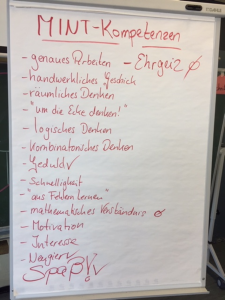 MINT-Kompetenzen
- genaues Arbeiten - Ehrgeiz Ø
- handwerkliches Geschick
- räumliches Denken
- "um die Ecke denken!"
- logisches Denken
- kombinatorisches Denken
- Geduld √
- Schnelligkeit
- "aus Fehlern lernen"
- mathematisches Verständnis Ø
- Motivation
- Interesse
- Neugier √
Spaß! √